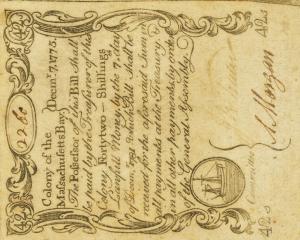 42s
2280
Colony of the
Massachusetts Bay. Decemr. 7, 1775.
The Possessor of this Bill shall
be paid by the Treasurer of this
Colony Fortytwo-Shillings
Lawfull Money, by the 7. day
which Bill shall be
received for the aforesaid Sum
in all payments at the Treasury
in all other payments by order
of the General Assembly.
42s
42s
42s